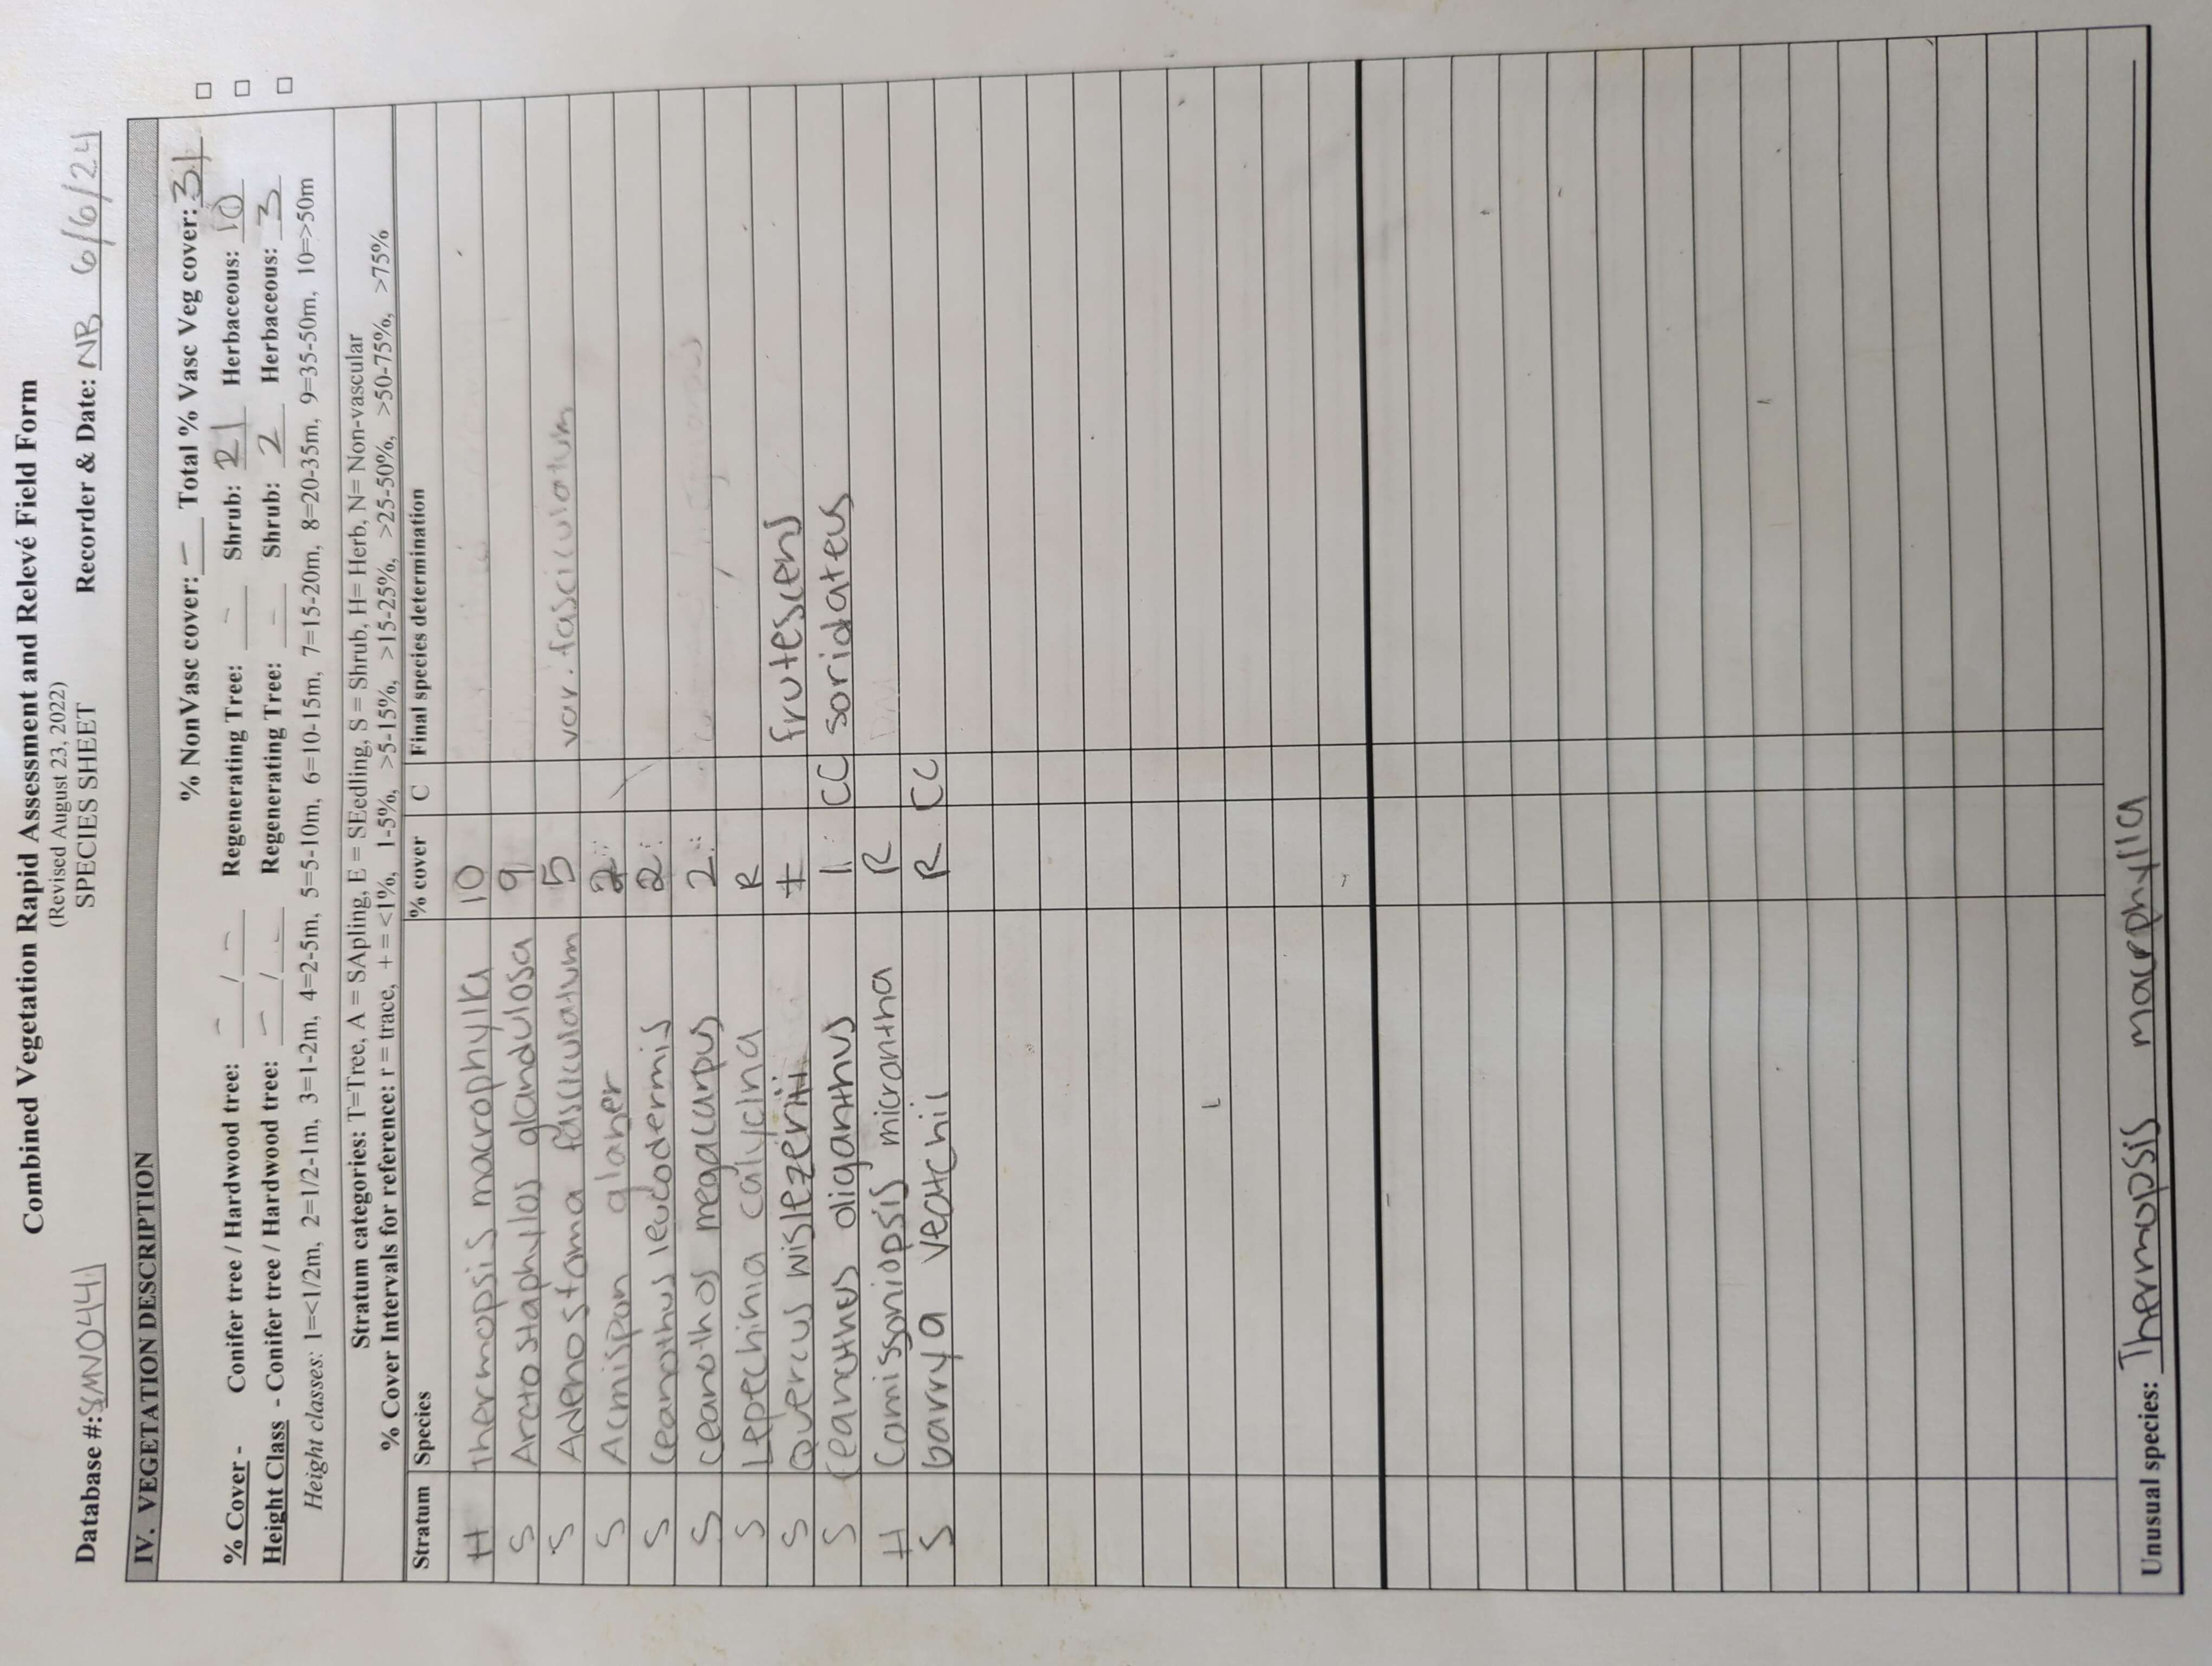 Combined Vegetation Rapid Assessment and Relevé Field Form
(Revised August 23, 2022)
SPECIES SHEET
Database #: SMN0441 Recorder & Date: NB 6/6/24
IV. VEGETATION DESCRIPTION
% NonVasc cover: – Total % Vasc Veg cover: 31 □
% Cover - Conifer tree / Hardwood tree: – / – Regenerating Tree: – Shrub: 21 Herbaceous: 10 □
Height Class - Conifer tree / Hardwood tree: – / – Regenerating Tree: – Shrub: 2 Herbaceous: 3 □
Height classes: 1=<1/2m, 2=1/2-1m, 3=1-2m, 4=2-5m, 5=5-10m, 6=10-15m, 7=15-20m, 8=20-35m, 9=35-50m, 10=>50m
Stratum categories: T=Tree, A = SApling, E = SEedling, S = Shrub, H= Herb, N= Non-vascular
% Cover Intervals for reference: r = trace, + = <1%, 1-5%, >5-15%, >15-25%, >25-50%, >50-75%, >75%
Stratum Species % cover C Final species determination
H Thermopsis macrophylla 10
S Arctostaphylos glandulosa 9
S Adenostoma fasciculatum 5 var. fasciculatum
S Acmispon glaber 2
S Ceanothus leucodermis 2
S Ceanothos megacarpus 2
S Lepechinia calycina R
S Quercus wislezenii + frutescens
S Ceanothus oliganthus 1 CC soridateus
H Camissoniopsis micrantha R
S Garrya veatchii R CC
Unusual species: Thermopsis macrphylla